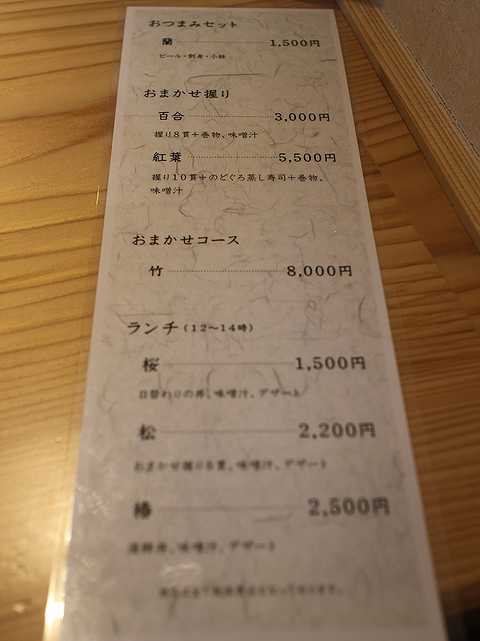 おつまみセット
蘭 1,500円
ビール・刺身・小鉢
おまかせ握り
百合 3,000円
握り8貫+巻物、味噌汁
紅葉 5,500円
握り10貫+のどぐろ蒸し寿司+巻物、
味噌汁
おまかせコース
竹 8,000円
ランチ(12〜14時)
桜 1,500円
日替わりの丼、味噌汁、デザート
松 2,200円
おまかせ握り8貫、味噌汁、デザート
椿 2,500円
海鮮丼、味噌汁、デザート